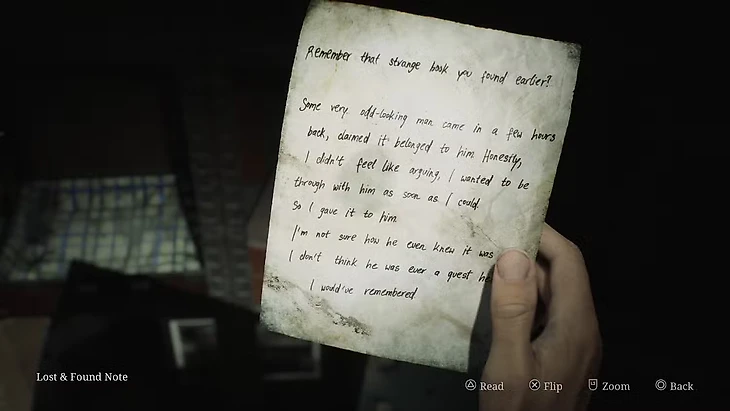 Remember that strange book you found earlier?
Some very odd-looking man came in a few hours
back, claimed it belonged to him. Honestly,
I didn't feel like arguing, I wanted to be
through with him as soon as I could.
So I gave it to him
I'm not sure how he even knew it was
I don't think he was ever a guest
I would've remembered
Lost & Found Note
Read Flip Zoom Back